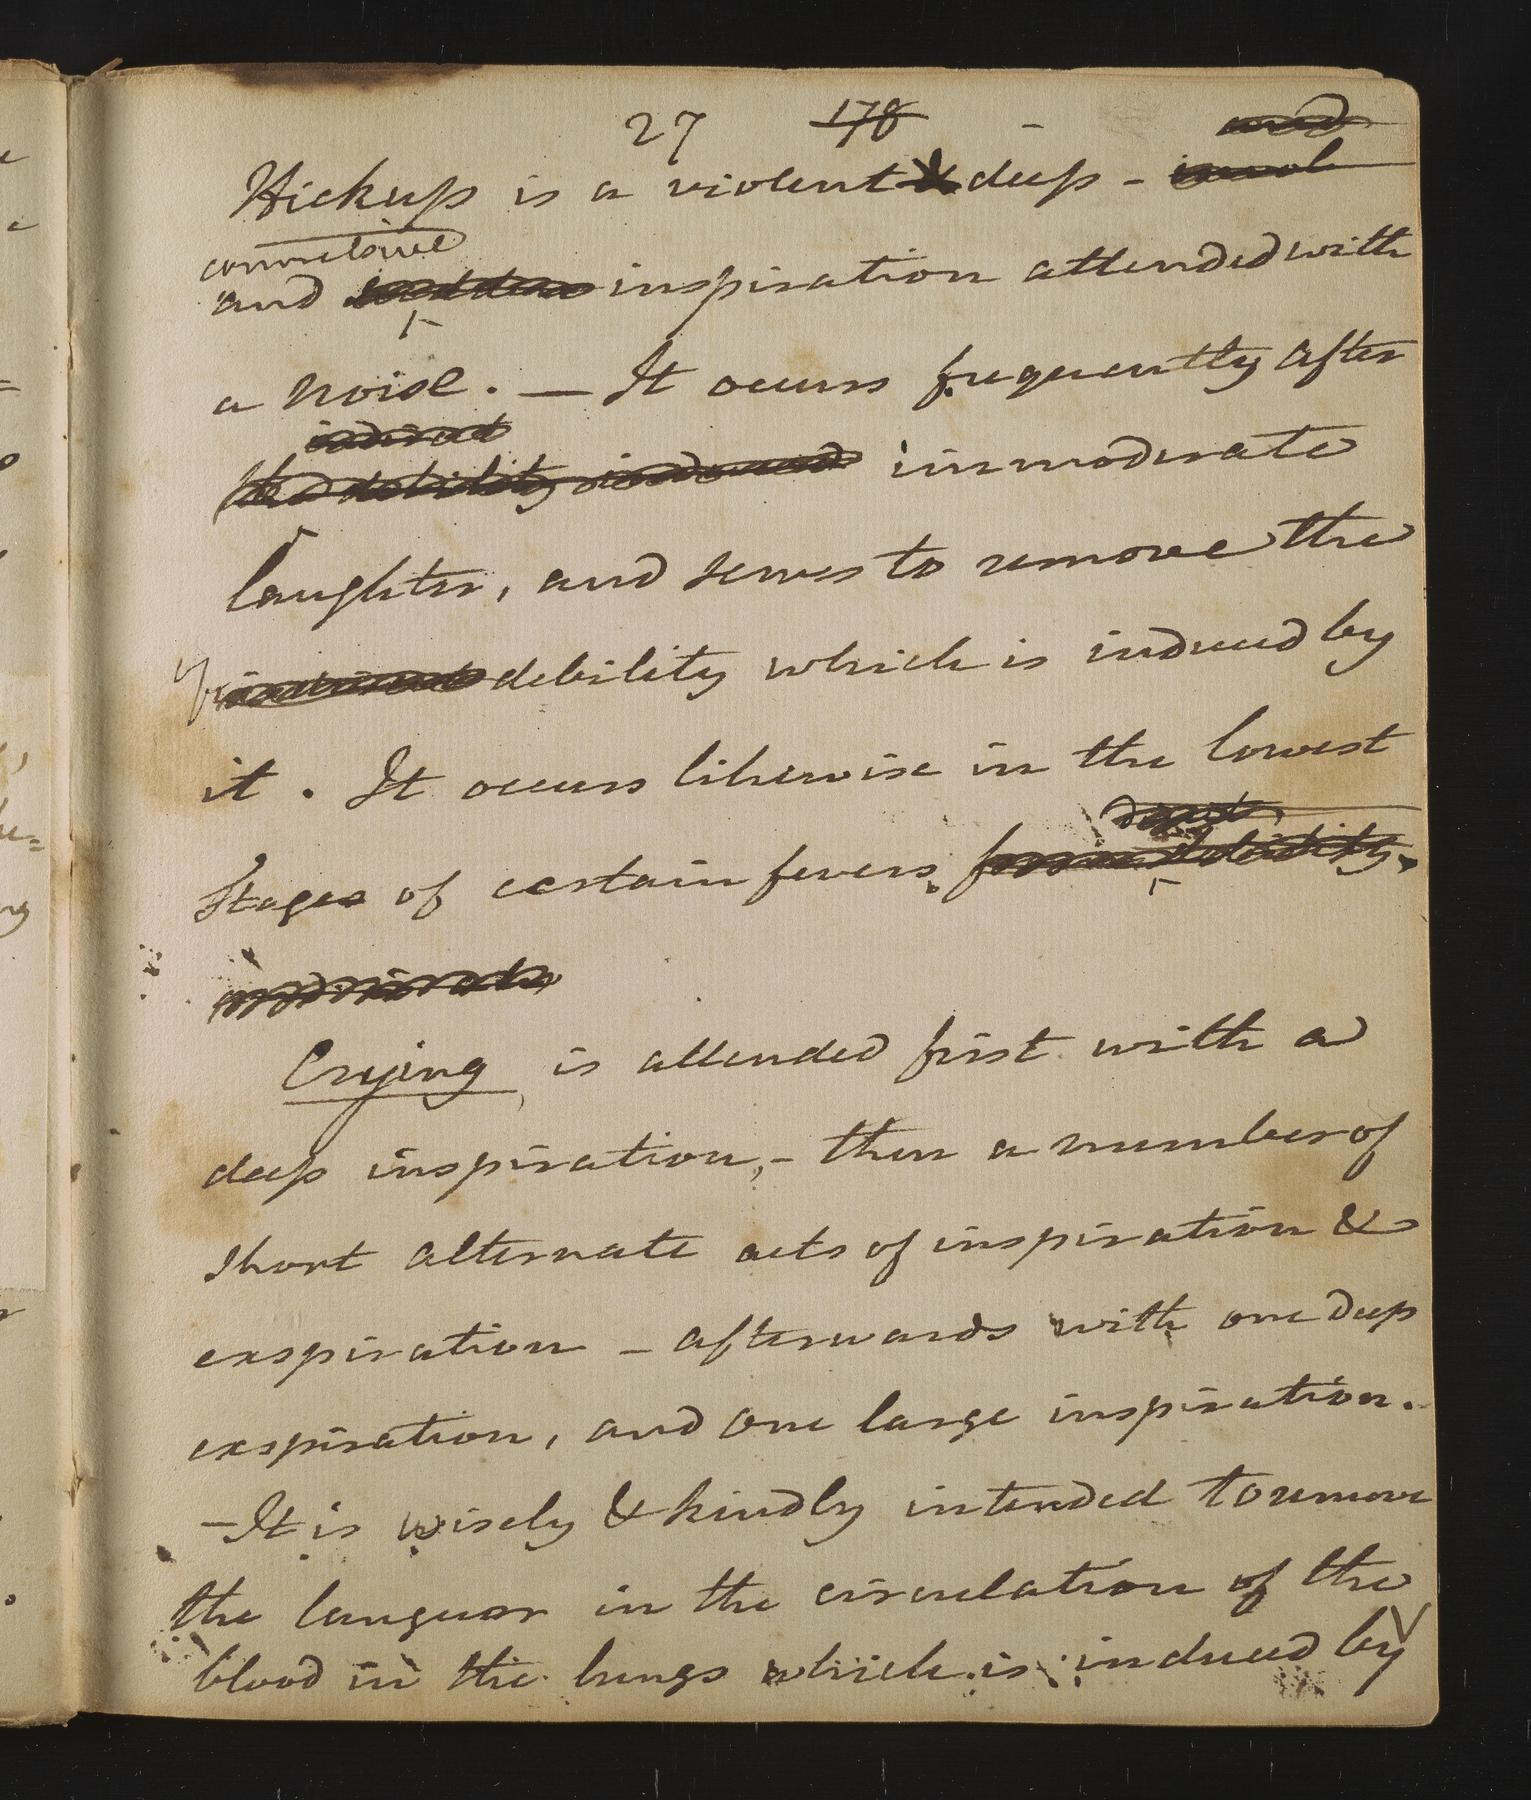 27 178
and
Hickup is a violent & deep -
convulsive
and sudden inspiration attended with
a noise. — It occurs frequently after
indirect
the debility induced immoderate
laughter, and serves to remove the
indirect debility which is induced by
it. It occurs likewise in the lowest
Stages of certain fevers, from debility.
Crying is attended first with a
deep inspiration, - then a number of
short alternate acts of inspiration &
exspiration - afterwards with one deep
exspiration, and one large inspiration.
- It is wisely & kindly intended to remove
the languor in the circulation of the
blood in the lungs which is induced by